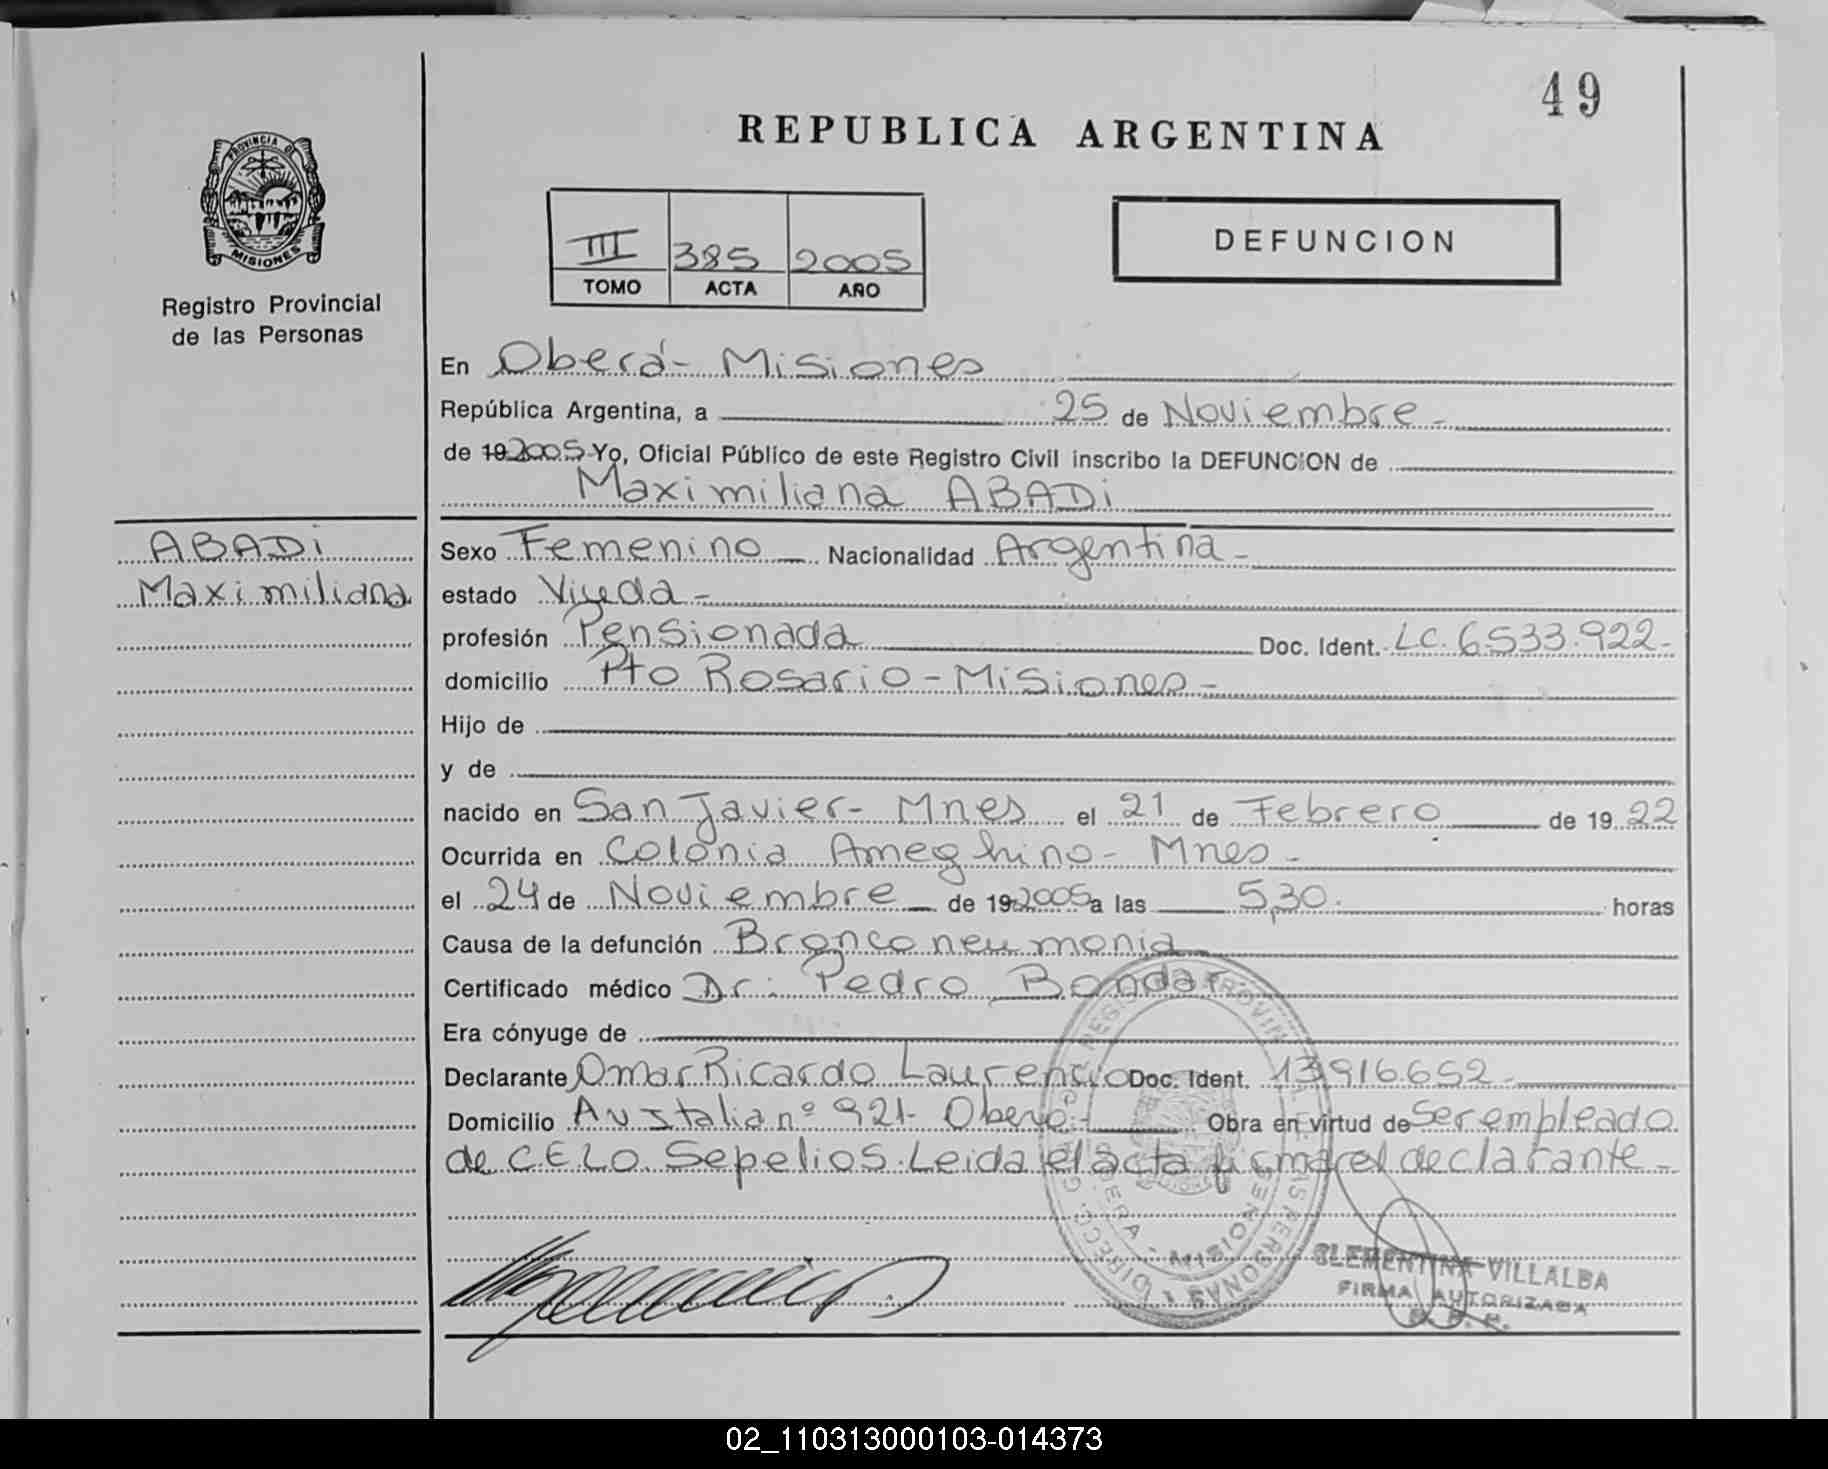 49
REPUBLICA ARGENTINA
PROVINCIA DE
MISIONES
III 385 2005
TOMO ACTA AÑO
DEFUNCION
Registro Provincial
de las Personas
En Oberá - Misiones
República Argentina, a 25 de Noviembre -
de 19 2005 Yo, Oficial Público de este Registro Civil inscribo la DEFUNCION de
Maximiliana ABADi
ABADi
Maximiliana
Sexo Femenino Nacionalidad Argentina -
estado Viuda -
profesión Pensionada Doc. Ident. LC. 6533.922 -
domicilio Pto Rosario - Misiones -
Hijo de
y de
nacido en San Javier - Mnes el 21 de Febrero de 19 22
Ocurrida en Colonia Ameghino - Mnes -
el 24 de Noviembre de 19 2005 a las 5,30. horas
Causa de la defunción Bronconeumonia
Certificado médico Dr: Pedro Bondar
Era cónyuge de
Declarante Omar Ricardo Laurencio Doc. Ident. 13916652 -
Domicilio Australia nº 921 - Obera - Obra en virtud de Ser empleado
de C.E.L.O. Sepelios. Leida el acta firma el declarante -
CLEMENTINA VILLALBA
FIRMA AUTORIZADA
02_110313000103-014373